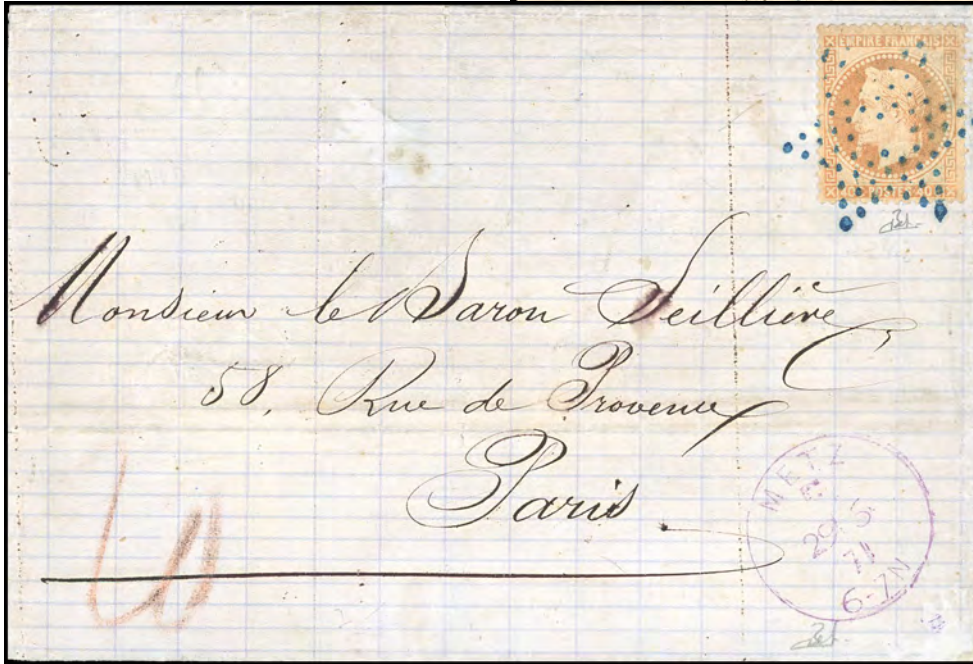 EMPIRE FRANÇAIS
POSTES 40
Monsieur le Baron Seillière
58, Rue de Provence
Paris
METZ
29 5
71
6-7N